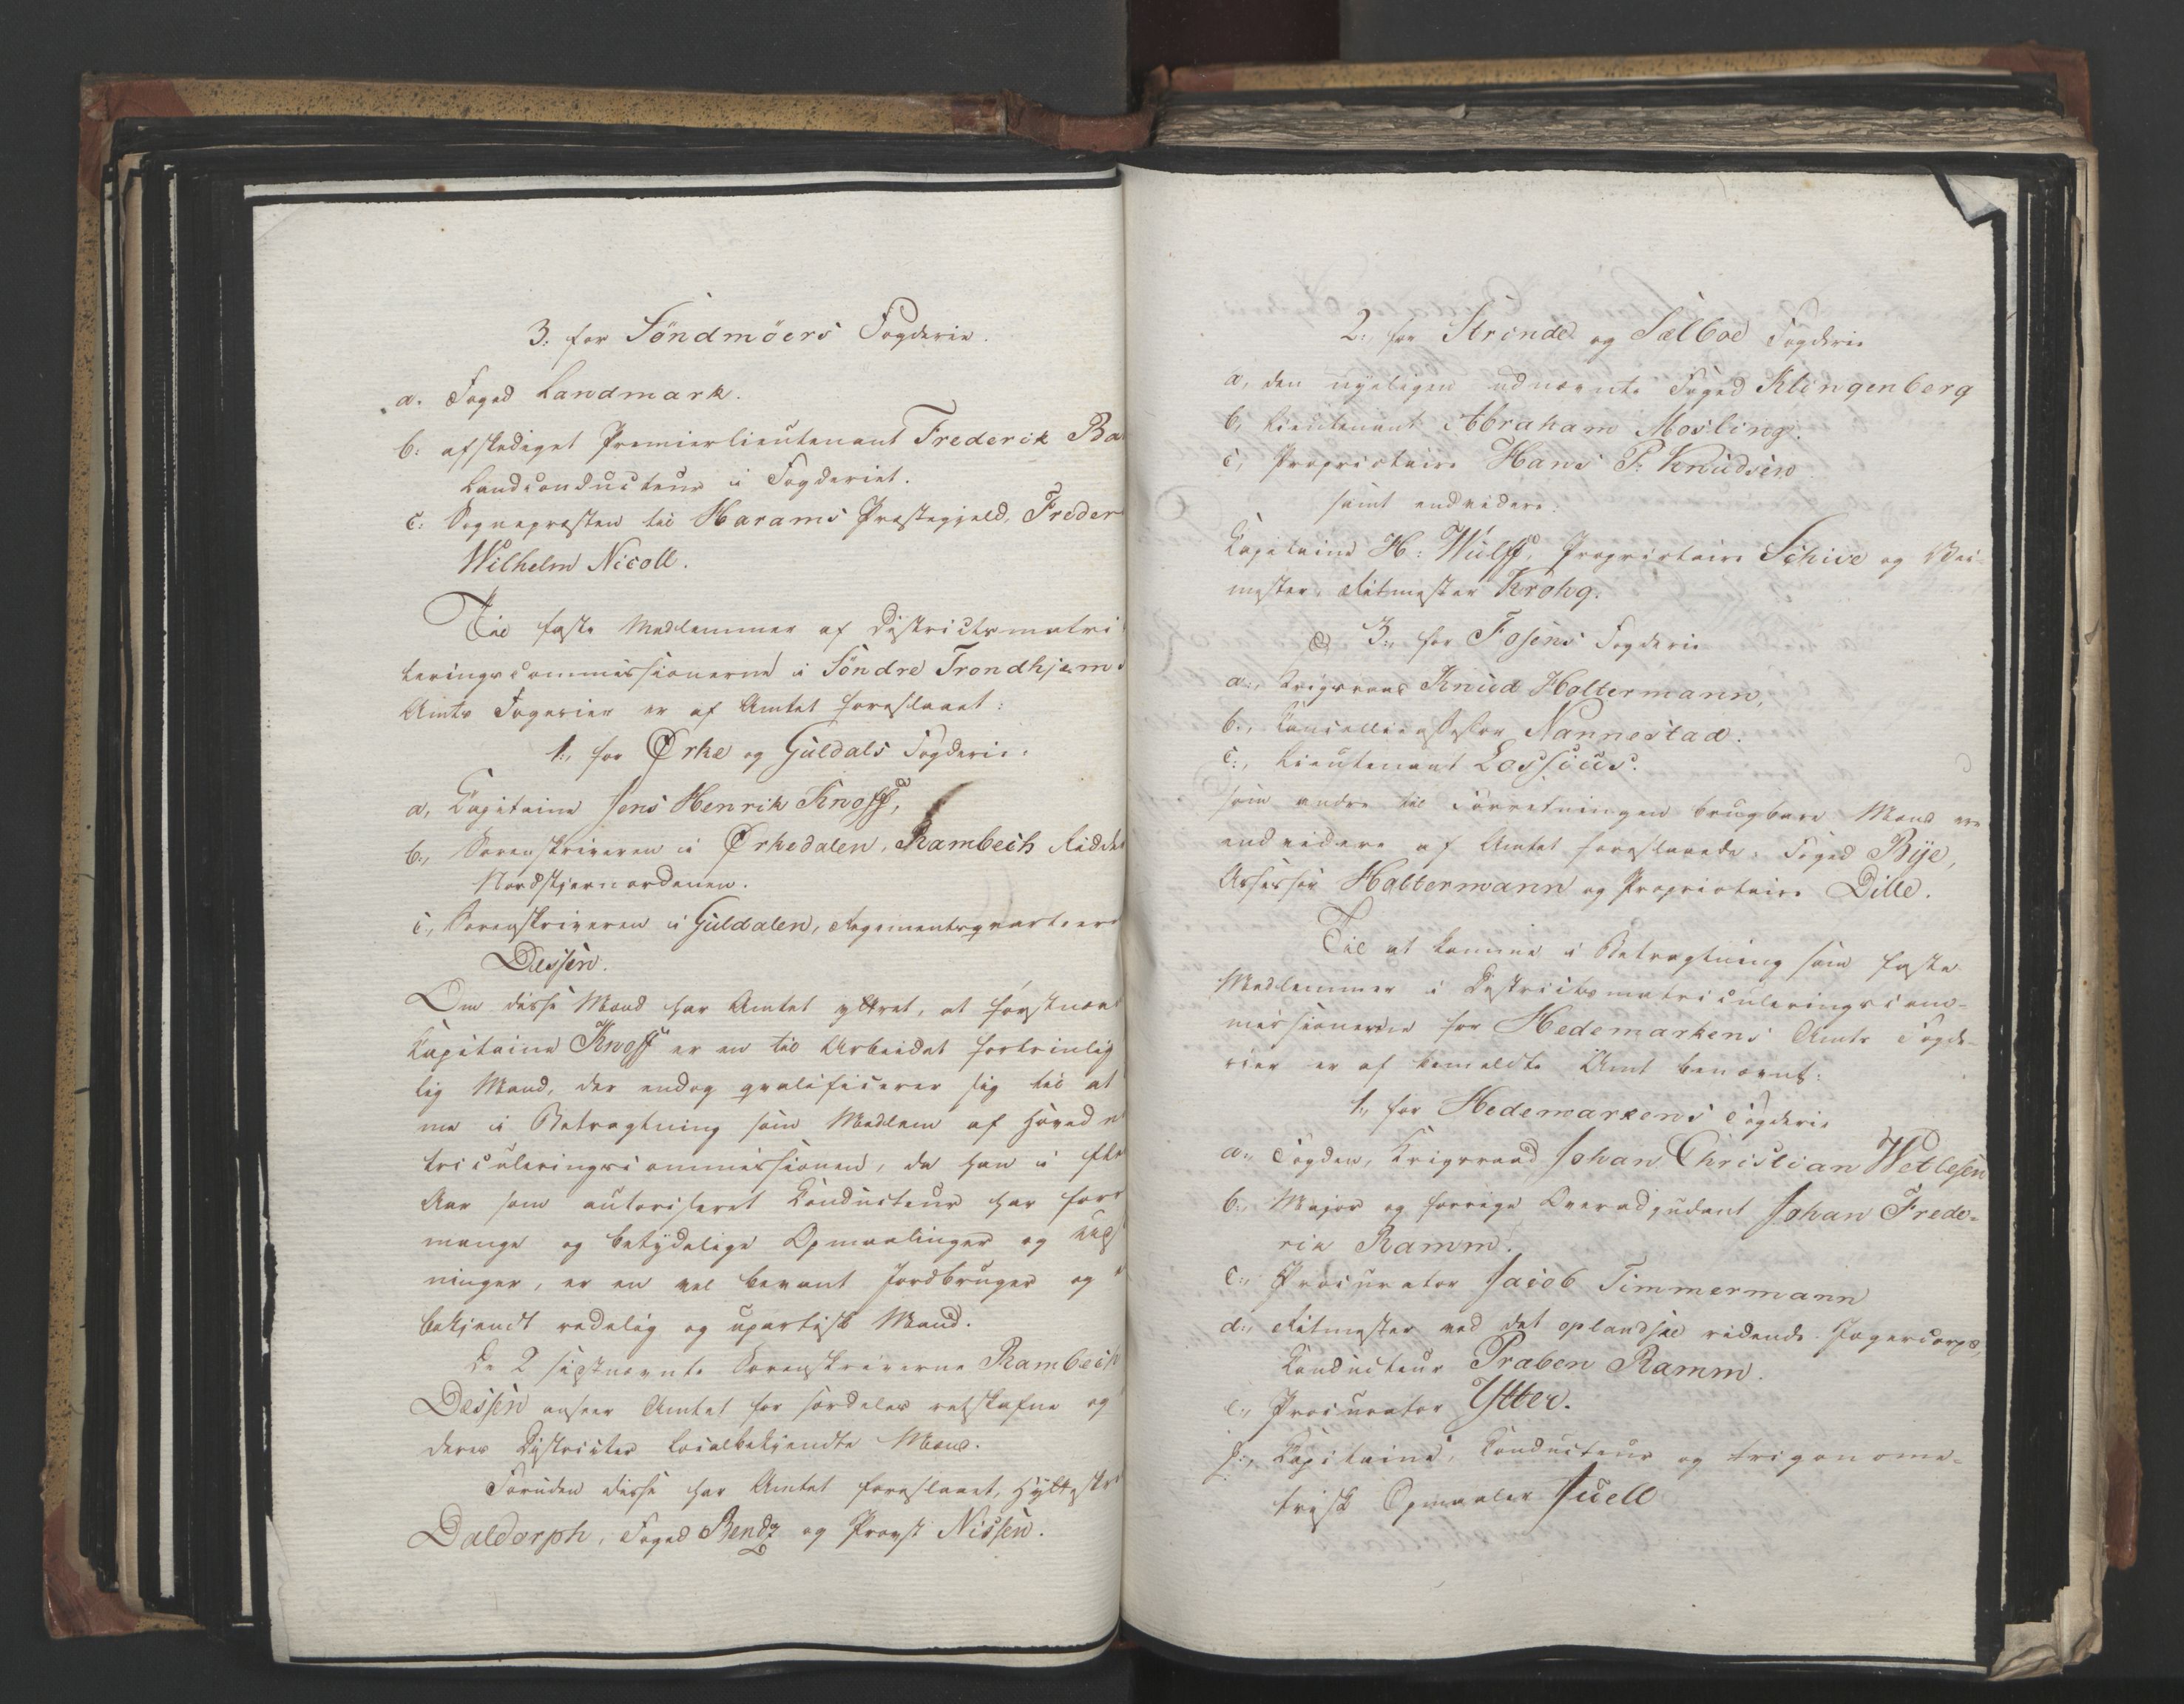 3: for Söndmöers Fogderie.
a. Foged Landmark.
b: afskediget Premierlieutenant Frederik
Landconducteur i Fogderiet.
c: Sognepræsten til Harams Præstegjeld, Freder
Wilhelm Nicoll.
Til faste Medlemmer af Districtsmatri
leringscommissionerne i Söndre Trondhjems
Amts Fogderier er af Amtet foreslaaet:
1., for Ørke og Guldals Fogderie.
a, Capitaine Jens Henrik Knoff,
b., Sorenskriveren i Ørkedalen, Rambech Ridder
Nordstjernordenen.
c, Sorenskriveren i Guldalen, Regimentsqvarteer
Dessen.
Om disse Mænd har Amtet yttret, at førstnævn
Capitaine Knoff er en til Arbeidet fortrinlig
lig Mand, der endog qvalificerer sig til at
me i Betragtning som Medlem af Hoved
triculeringscommissionen, da han i fle
Aar som autoriseret Conducteur har forr
mange og betydelige Opmaalinger og
ninger, er en vel bevant Jordbruger og
bekjendt redelig og upartisk Mand.
De 2 sidstnævnte Sorenskriverne Rambech
Dessen anseer Amtet for særdeles retskafne og
deres Districter localbekjendte Mænd.
Foruden disse har Amtet foreslaaet, Hytteskr
Daldorph, Foged Bendz og Provst Nissen.
2., for Strinde og Sælboe Fogderie
a, den nyeligen udnævnte Foged Klingenberg
b, Lieutenant Abraham Mosling.
c, Proprietaire Hans P. Knudsen
samt endvidere.
Capitaine H: Wulff, Proprietaire Schive og Vei-
mester, Ritmester Krohg.
3., for Fosens Fogderie
a., Krigsraad Knud Holtermann,
b., Cancellieassessor Nannestad.
c., Lieutenant Lossius.
som andre til Forretningen brugbare Mænd ere
endvidere af Amtet foreslaaede, Foged Bye,
Assessor Holtermann og Proprietaire Dille.
Til at komme i Betragtning som faste
Medlemmer i Districtsmatriculeringscom-
missionerne for Hedemarkens Amts Fogde-
rier er af bemeldte Amt benævnt:
1., for Hedemarkens Fogderie
a., Fogden, Krigsraad Johan Christian Wetlesen
b., Major og forrige Overadjudant Johan Frede-
rik Ramm.
c., Procurator Jacob Timmermann
d., Ritmester ved det oplandske ridende Jægercorps,
Conducteur Preben Ramm.
e., Procurator Ytter.
f., Capitaine, Conducteur og trigonome-
trisk Opmaaler Juell